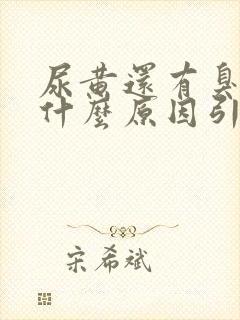 尿黄還有臭
什麼原因引
宋希斌